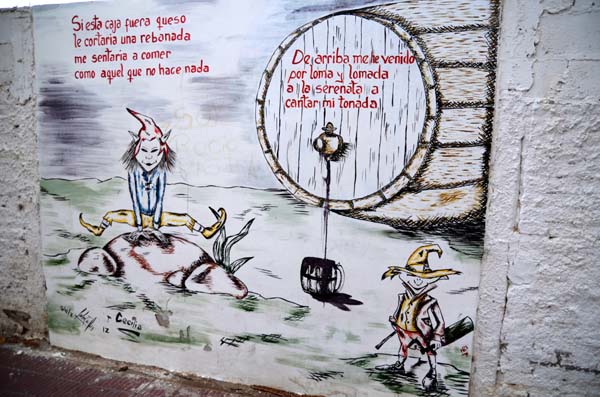 Si esta caja fuera queso
le cortaria una rebanada
me sentaria a comer
como aquel que no hace nada
De arriba me he venido
por loma y lomada
a la serenata a
cantar mi tonada
Cecilia
12